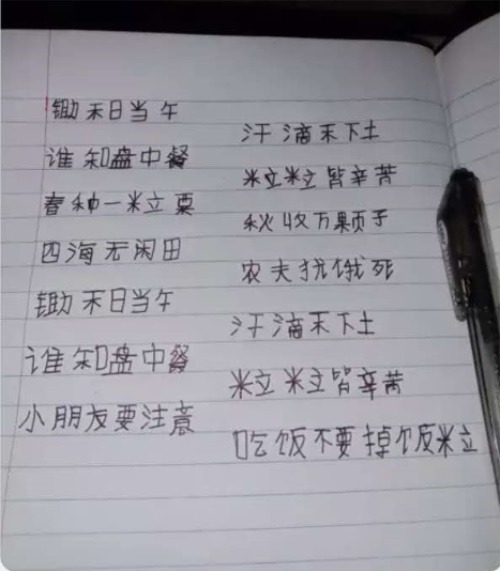 锄禾日当午
汗滴禾下土
谁知盘中餐
粒粒皆辛苦
春种一粒粟
秋收万颗子
四海无闲田
农夫犹饿死
锄禾日当午
汗滴禾下土
谁知盘中餐
粒粒皆辛苦
小朋友要注意
吃饭不要掉饭粒